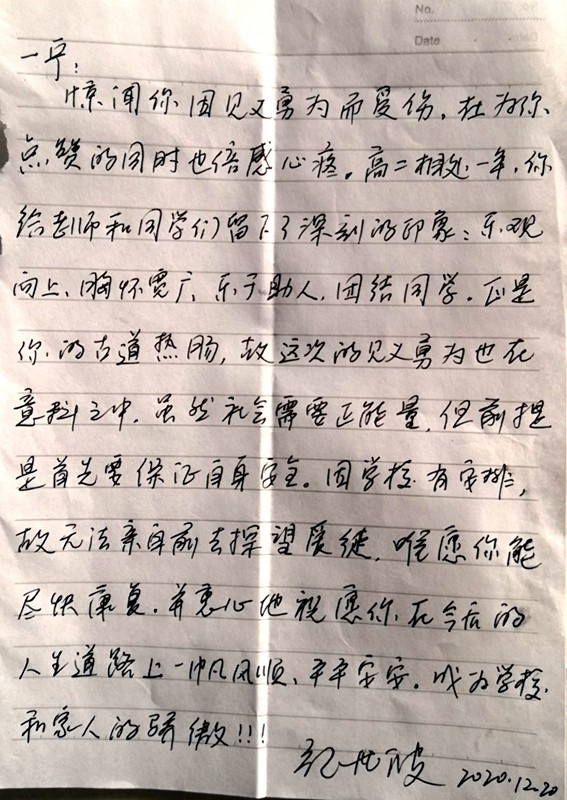 No.
Date
一宁：
惊闻你因见义勇为而受伤，在为你
点赞的同时也倍感心疼。高二相处一年，你
给老师和同学们留下了深刻的印象：乐观
向上、胸怀宽广、乐于助人、团结同学。正是
你的古道热肠，故这次的见义勇为也在
意料之中。虽然社会需要正能量，但前提
是首先要保证自身安全。因学校有安排，
故无法亲自前去探望爱徒，唯愿你能
尽快康复。并衷心地祝愿你在今后的
人生道路上一帆风顺、平平安安。成为学校
和家人的骄傲！！！
2020.12.20